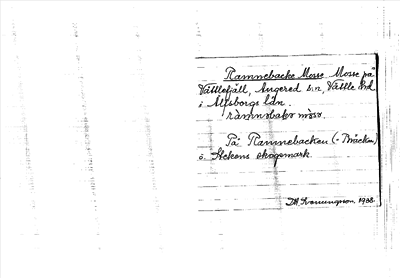 Ramnebacke Mosse Mosse på
Vättlefjäll, Angered s:n, Vättle hd.
i Älvsborgs län.
ràmnəbakə mòsə.
På Ramnebacken (-Bräcken)
ö. Stekens skogsmark.
1938.